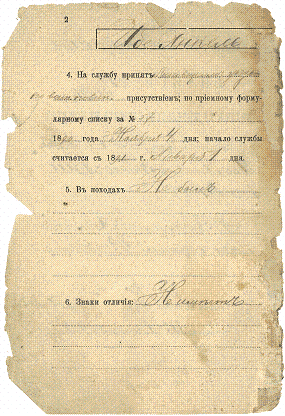 2
4. На службу принятъ
присутствіемъ; по пріемному форму-
лярному списку за № 37
18 года Ноября 4 дня; начало службы
считается съ 1891 г. Января 1 дня.
5. Въ походахъ Не былъ
6. Знаки отличія: Не имѣетъ